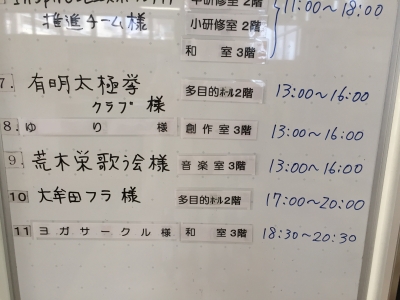 中研修室 2階
推進チーム様 小研修室 2階 11:00~18:00
和 室 3階
7. 有明太極拳
クラブ 様 多目的ホール2階 13:00~16:00
8. ゆ り 様 創作室 3階 13:00~16:00
9. 荒木栄歌う会様 音楽室 3階 13:00~16:00
10 大牟田フラ 様 多目的ホール2階 17:00~20:00
11 ヨガサークル 様 和 室 3階 18:30~20:30